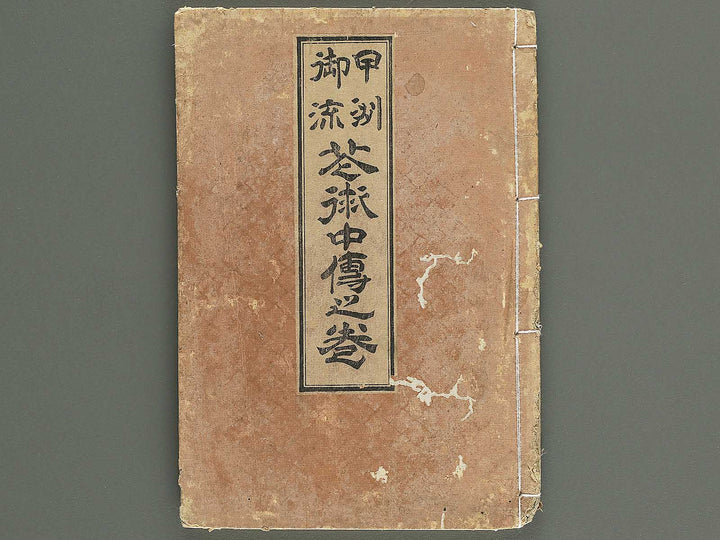 甲州
御流
花術中傳之巻